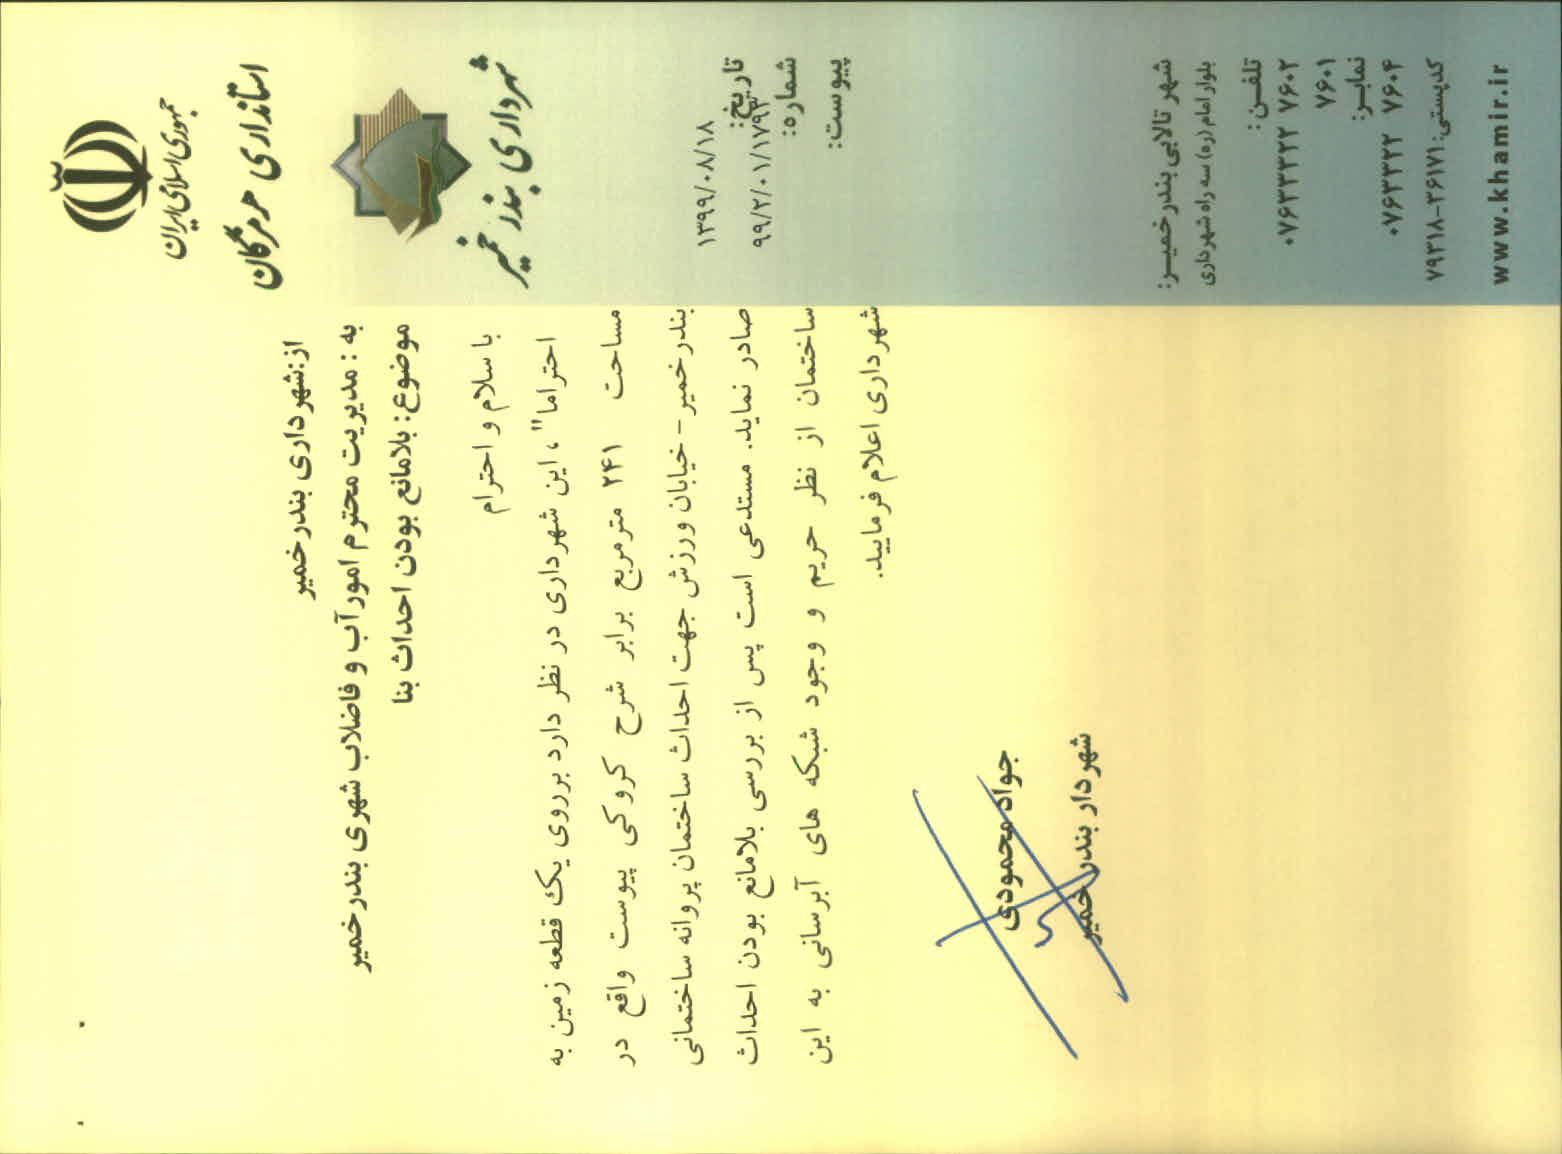 جمهوری اسلامی ایران
استانداری هرمزگان
شهرداری بندر خمیر
تاریخ:
۱۳۹۹/۰۸/۱۸
شماره:
۹۹/۲/۰۱/۱۷۹۳
پیوست:
شهر تالابی بندر خمیـر:
بلوار امام (ره) سه راه شهرداری
تلفـن :
۰۷۶۳۳۲۲ ۷۶۰۲
۷۶۰۱
نمابـر:
۰۷۶۳۳۲۲ ۷۶۰۴
کدپستی: ۳۶۱۷۱-۷۹۳۱۸
www.khamir.ir
از:شهرداری بندرخمیر
به : مدیریت محترم امور آب و فاضلاب شهری بندرخمیر
موضوع: بلامانع بودن احداث بنا
با سلام و احترام
احتراما"، این شهرداری در نظر دارد برروی یک قطعه زمین به
مساحت ۲۴۱ مترمربع برابر شرح کروکی پیوست واقع در
بندرخمیر - خیابان ورزش جهت احداث ساختمان پروانه ساختمانی
صادر نماید. مستدعی است پس از بررسی بلامانع بودن احداث
ساختمان از نظر حریم و وجود شبکه های آبرسانی به این
شهرداری اعلام فرمایید.
جواد محمودی
شهردار بندر خمیر